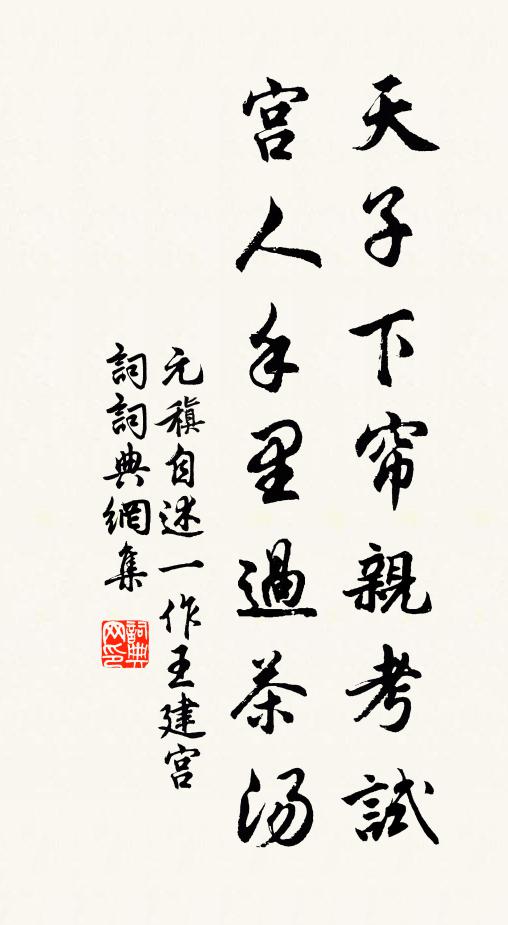 天子下帘親考試
宮人手里過茶汤
元稹自述一作王建宮
詞詞典網集
詞典网印